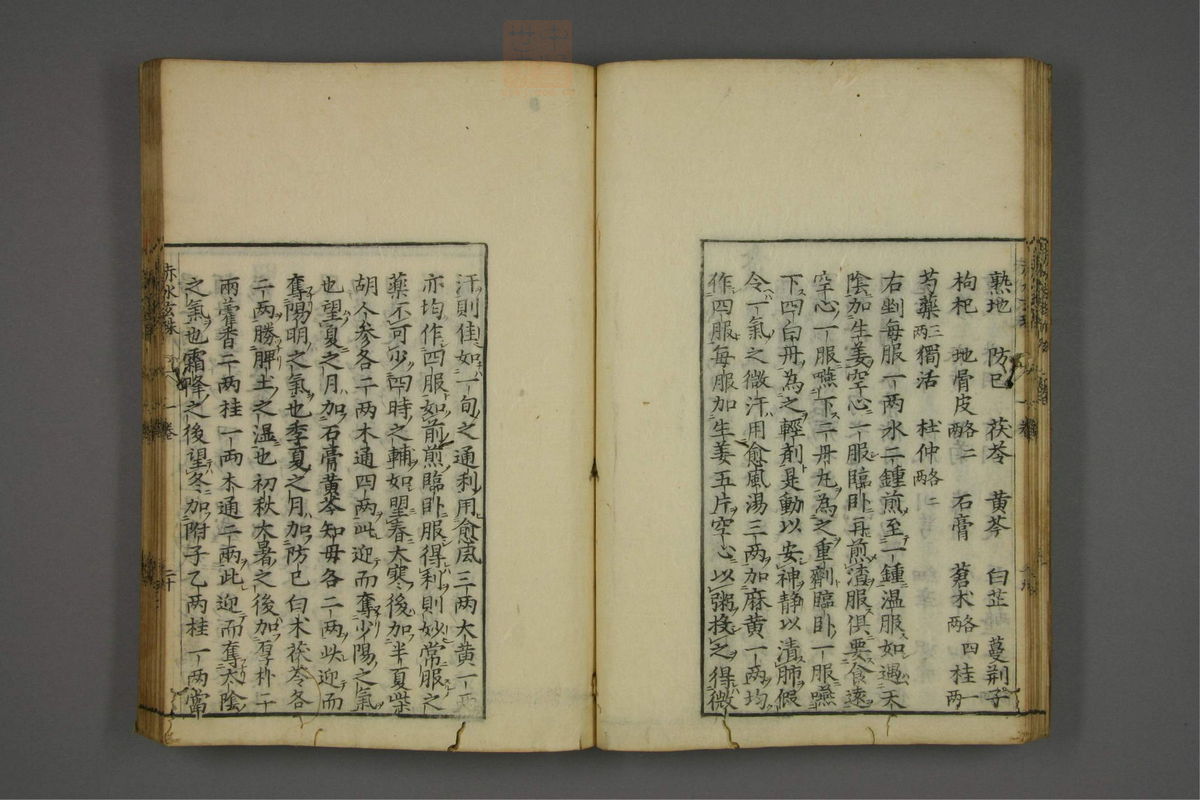 熟地　防已　茯苓　黄芩　白芷　蔓荆子
枸杞　地骨皮各二两　石膏　蒼朮各四两　桂一两
芍薬三两　獨活　杜仲各二两
右剉每服一两水二鍾煎至一鍾温服如遇天
陰加生姜空心一服臨卧再煎渣服俱要食遠
空心一服嚥下二丹丸為之重劑臨卧一服嚥
下四白丹為之輕劑是動以安神静以清肺假
令一氣之微汗用愈風湯三两加麻黄一两均
作四服每服加生姜五片空心以粥投之得微
汗則佳如一旬之通利用愈風三两大黄一两
亦均作四服如前煎臨卧服得利則妙常服之
薬不可少四時之輔如望春大寒後加半夏柴
胡人参各二两木通四两此迎而奪少陽之氣
也望夏之月加石膏黄芩知母各二两此迎而
奪陽明之氣也季夏之月加防已白术茯苓各
二两勝脾土之湿也初秋大暑之後加厚朴二
两藿香二两桂一两木通二两此迎而奪太陰
之氣也霜降之後望冬加附子乙两桂一两當
赤水玄珠
一卷
二十